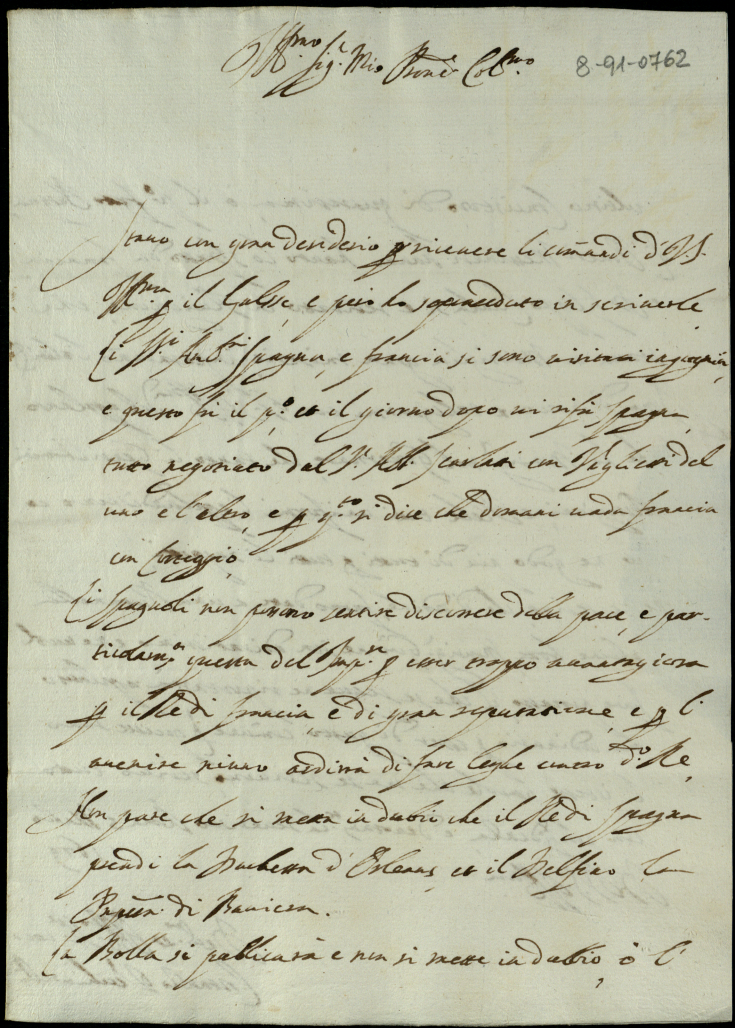 Ill.mo Sig.r Mio Pron.e Col.mo
8-91-0762
Stavo con gran desiderio p ricevere li comandi d' V.S.
Ill.ma p il e però ho in scriverle
Li SS.ri Amb.ri Spagna, e francia si sono visitati
e questo fu il p.o et il giorno dopo vi fu Spagna
tutto negotiato dal S.r Ab. Scarlati con Viglietti del
uno e l'altro, e p q.to si dice che domani vada francia
con Corteggio
Li Spagnoli non ponno sentire discorrere della pace, e par-
ticolarm.e questa del Imp.re p esser troppo avantagiosa
p il Re di francia, e di gran reputatione, e p l'
avenire niuno ardirà di fare leghe contro d.o Re
Non pare che si metta in dubio che il Re di Spagna
prendi la Duchessa d'Orleans, et il Delfino la
di Baviera.
La Bolla si publicarà e non si mette in dubbio, ò l'